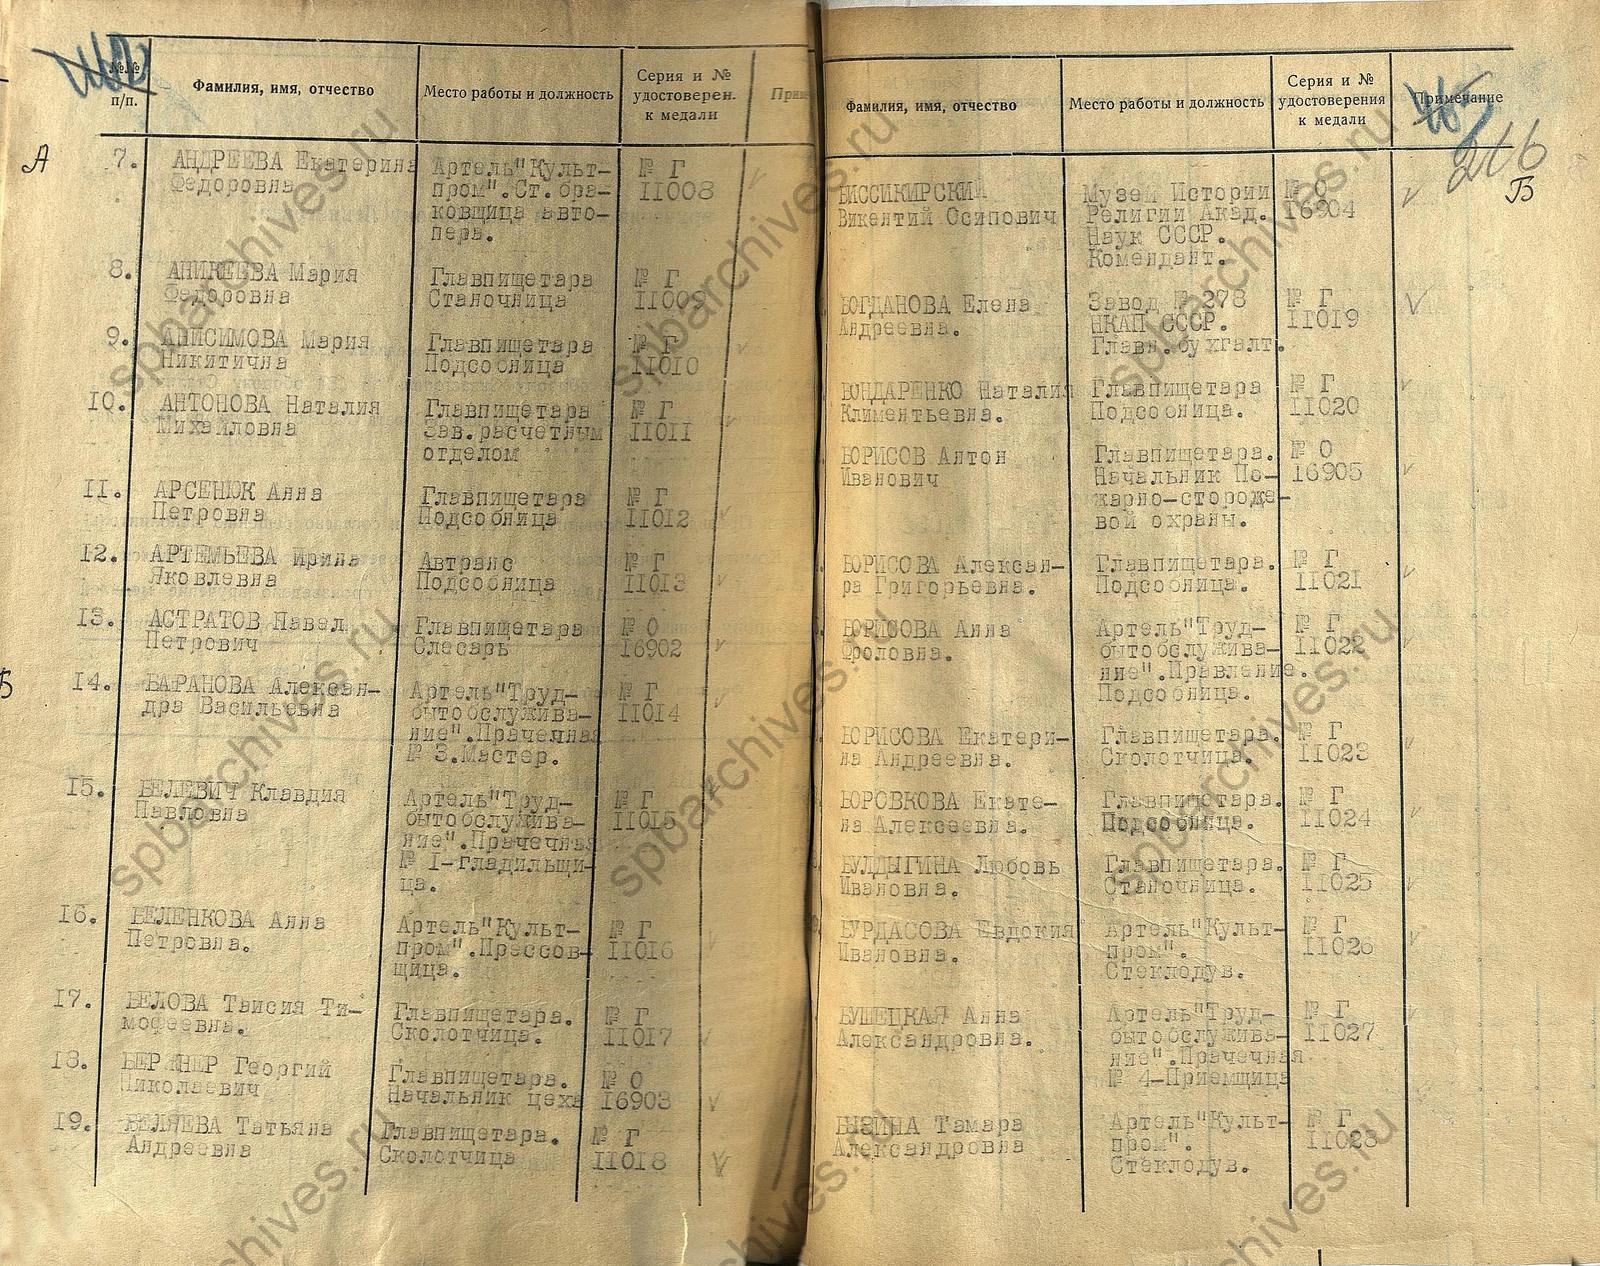 №№ п/п.
Фамилия, имя, отчество
Место работы и должность
Серия и №
удостоверен.
к медали
А
7. АНДРЕЕВА Екатерина
Федоровна
Артель"Культ-
пром".Ст.бра-
ковщица авто-
пера.
№ Г
11008
8. АНИКЕЕВА Мария
Федоровна
Главпищетара
Станочница
№ Г
11009
9. АНИСИМОВА Мария
Никитична
Главпищетара
Подсобница
№ Г
11010
10. АНТОНОВА Наталия
Михайловна
Главпищетара
Зав.расчетным
отделом
№ Г
11011
11. АРСЕНЮК Анна
Петровна
Главпищетара
Подсобница
№ Г
11012
12. АРТЕМЬЕВА Ирина
Яковлевна
Автранс
Подсобница
№ Г
11013
13. АСТРАТОВ Павел
Петрович
Главпищетара
Слесарь
№ О
16902
Б
14. БАРАНОВА Алексан-
дра Васильевна
Артель"Труд-
бытобслужива-
ние".Прачечная
№ 3.Мастер.
№ Г
11014
15. БЕЛЕВИЧ Клавдия
Павловна
Артель"Труд-
бытобслужива-
ние".Прачечная
№ 1-гладильщи-
ца.
№ Г
11015
16. БЕЛЕНКОВА Анна
Петровна.
Артель"Культ-
пром".Прессов-
щица.
№ Г
11016
17. БЕЛОВА Таисия Ти-
мофеевна.
Главпищетара.
Сколотчица.
№ Г
11017
18. Георгий
Николаевич
Главпищетара.
Начальник цеха
№ О
16903
19. БЕЛЯЕВА Татьяна
Андреевна
Главпищетара.
Сколотчица
№ Г
11018
Фамилия, имя, отчество
Место работы и должность
Серия и №
удостоверения
к медали
Примечание
216
Б
БИССИКИРСКИЙ
Викентий Осипович
Музей Истории
Религии Акад.
Наук СССР.
Комендант.
№ О
16904
БОГДАНОВА Елена
Андреевна.
Завод № 278
НКАП СССР.
Главн.бухгалт.
№ Г
11019
БОНДАРЕНКО Наталия
Климентьевна.
Главпищетара
Подсобница.
№ Г
11020
БОРИСОВ Антон
Иванович
Главпищетара.
Начальник По-
жарно-стороже-
вой охраны.
№ О
16905
БОРИСОВА Алексан-
ра Григорьевна.
Главпищетара.
Подсобница.
№ Г
11021
БОРИСОВА Анна
Фроловна.
Артель"Труд-
бытобслужива-
ние".Правление.
Подсобница.
№ Г
11022
БОРИСОВА Екатери-
на Андреевна.
Главпищетара.
Сколотчица.
№ Г
11023
БОРОВКОВА Екате-
на Алексеевна.
Главпищетара.
Подсобница.
№ Г
11024
БУЛДЫГИНА Любовь
Ивановна.
Главпищетара.
Станочница.
№ Г
11025
БУРДАСОВА Евдокия
Ивановна.
Артель"Культ-
пром".
Стеклодув.
№ Г
11026
БУШЕЦКАЯ Анна
Александровна.
Артель"Труд-
бытобслужива-
ние".Прачечная
№ 4-Приемщица
№ Г
11027
БЫЗИНА Тамара
Александровна
Артель"Культ-
пром".
Стеклодув.
№ Г
11028
spbarchives.ru